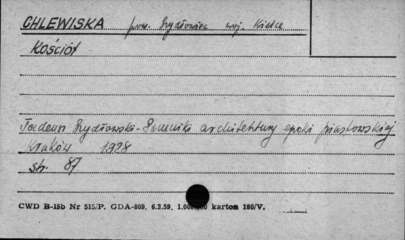 CHLEWISKA pow. Szydłowiec woj. Kielce
Kościół
Tadeusz Szydłowski - Pomniki architektury epoki piastowskiej
Kraków 1928
str. 87
CWD B-15b Nr 515/P. GDA-809. 6.3.59. 1.000.000 kartem 180/V.